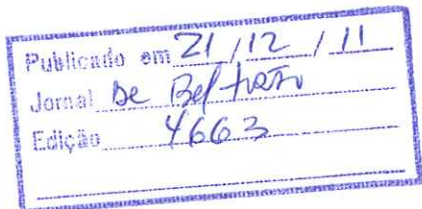 Publicado em 21/12/11
Jornal De Beltrão
Edição 4663